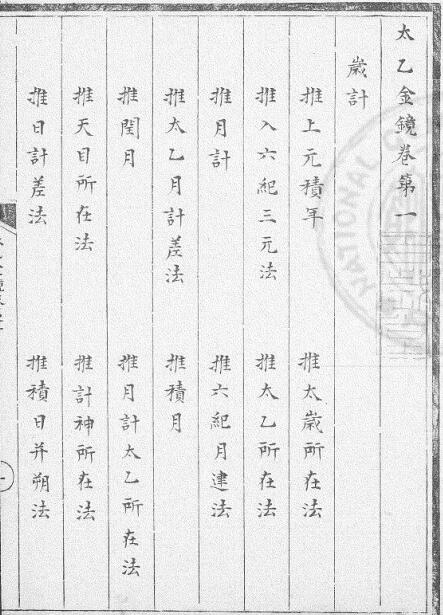 太乙金鏡卷第一
歲計
推上元積年 推太歲所在法
推入六紀三元法 推太乙所在法
推月計 推六紀月建法
推太乙月計差法 推積月
推閏月 推月計太乙所在法
推天目所在法 推計神所在法
推日計差法 推積日并朔法